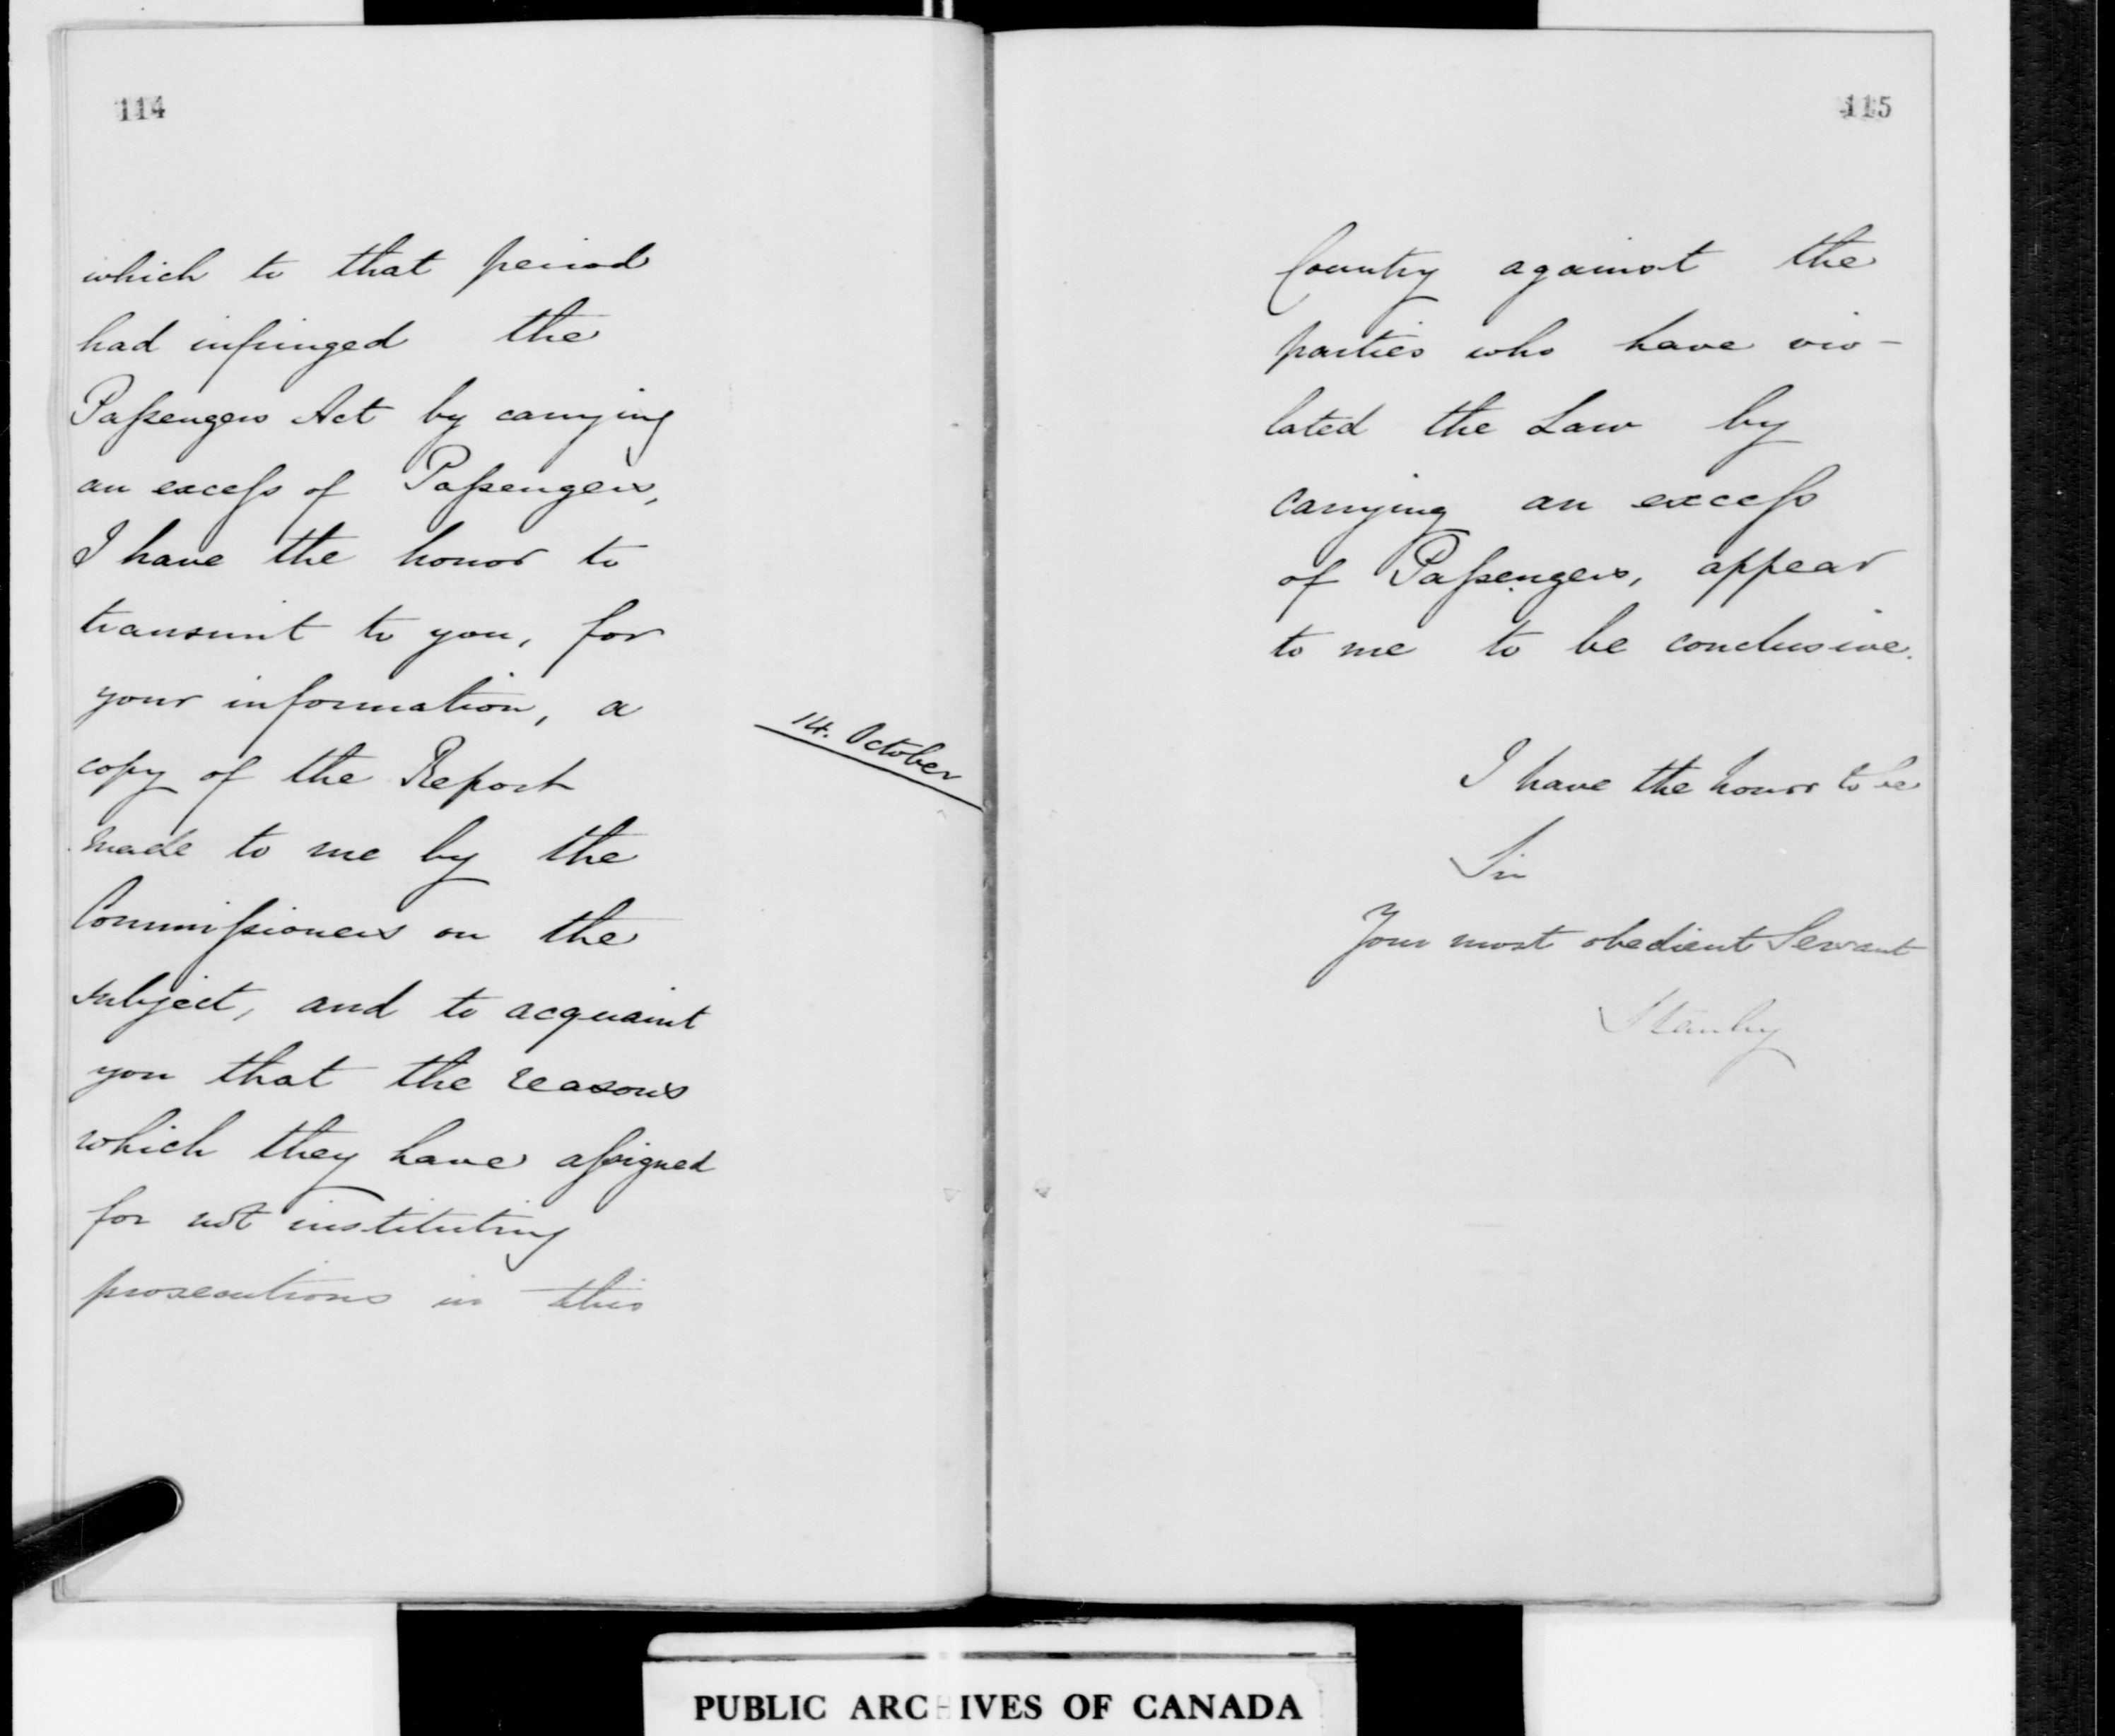 114
which to that period
had infringed the
Paſsengers Act by carrying
an exceſs of Paſsengers,
I have the honor to
transmit to you, for
your information, a
copy of the Report
made to me by the
Commiſsioners on the
subject, and to acquaint
you that the reasons
which they have aſsigned
for not instituting
prosecutions in this
14. October
115
Country against the
parties who have vio-
lated the Law by
carrying an exceſs
of Paſsengers, appear
to me to be conclusive.
I have the honor to be
Sir
Your most obedient Servant
Stanley
PUBLIC ARCHIVES OF CANADA